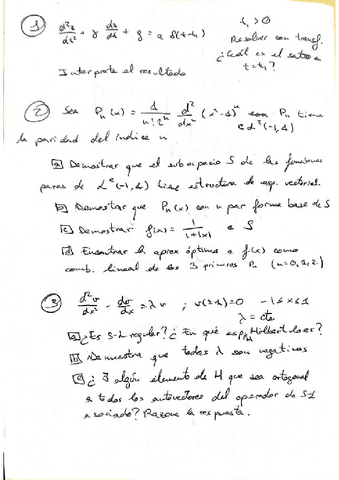 ① d²z/dt² + γ dz/dt + z = a δ(t-t₁)    t₁ > 0
Resolver con transf.
¿Cuál es el salto en
t = t₁?
Interprete el resultado
② Sea Pₙ(x) = 1/(n! 2ⁿ) dⁿ/dxⁿ (x²-1)ⁿ con Pₙ tiene
∈ L²(-1,1)
la paridad del indice n
a Demostrar que el subespacio S de las funciones
pares de L²(-1,1) tiene estructura de esp. vectorial.
b Demostrar que Pₙ(x) con n par forme base de S
c Demostrar f(x) = 1/(1+|x|) ∈ S
d Encontrar la aprox óptima a f(x) como
comb. lineal de los 3 primeros Pₙ (n=0,1,2.)
③ d²v/dx² - dv/dx = λ v ; v(±1)=0 -1≤x≤1
λ = cte
a ¿Es S-L regular? ¿En qué esp. Hilbert lo es?
b Demuestre que todos λ son negativos
c ¿∃ algún elemento de H que sea ortogonal
a todos los autovectores del operador de S-L
asociado? Razone la respuesta.